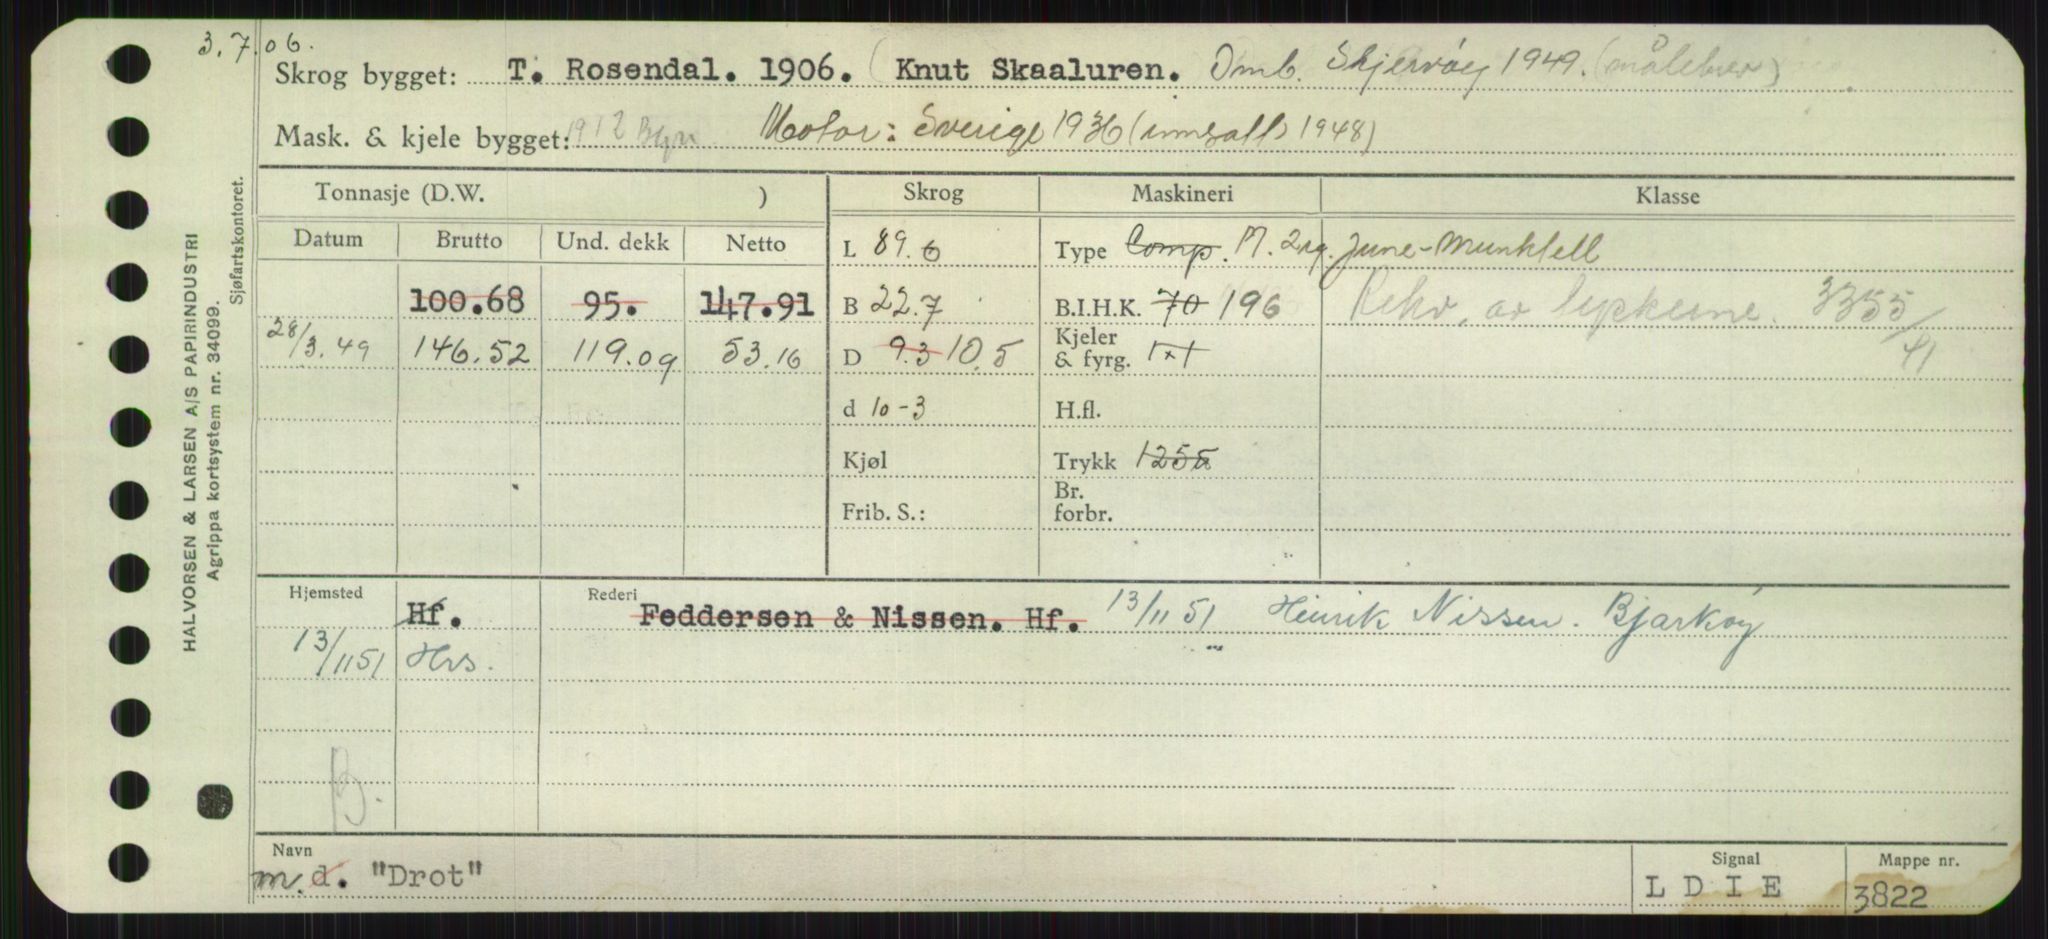 3.7.06.
Skrog bygget: T. Rosendal. 1906. (Knut Skaaluren. Omb. Skjervøy 1949. (målebrev)
Mask. & kjele bygget: 1912 Motor: Sverige 1936 (innsatt 1948)
Tonnasje (D.W. ) Skrog Maskineri Klasse
Datum Brutto Und. dekk Netto L 89.6 Type Comp. M. 2 sg. June-Munktell
100.68 95. 147.91 B 22.7 B.I.H.K. 70 196 Rekv. av lugekarme. 3355/41
28/3.49 146.52 119.09 53.16 D 9.3 10.5 Kjeler & fyrg. 1x1
d 10-3 H.fl.
Kjøl Trykk 125
Frib. S.: Br. forbr.
Hjemsted Hf. Rederi Feddersen & Nissen. Hf. 13/11 51 Henrik Nissen. Bjarkøy
13/11 51 Hrs.
B.
Navn Signal Mappe nr.
m. d. "Drot" LDIE 3822
HALVORSEN & LARSEN A/S PAPIRINDUSTRI
Agrippa kortsystem nr. 34099.
Sjøfartskontoret.